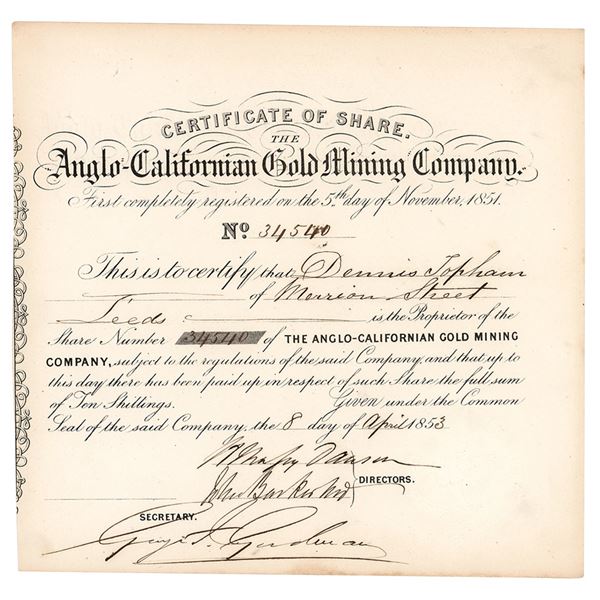 CERTIFICATE OF SHARE.
THE
Anglo-Californian Gold Mining Company.
First completely registered on the 5th day of November, 1851.
No 34540
This is to certify that Dennis Topham
of Merrion Street
Leeds is the Proprietor of the
Share Number 34540 of THE ANGLO-CALIFORNIAN GOLD MINING
COMPANY, subject to the regulations of the said Company, and that up to
this day there has been paid up in respect of such Share the full sum
of Ten Shillings. Given under the Common
Seal of the said Company, the 8 day of April 1853
DIRECTORS.
SECRETARY.